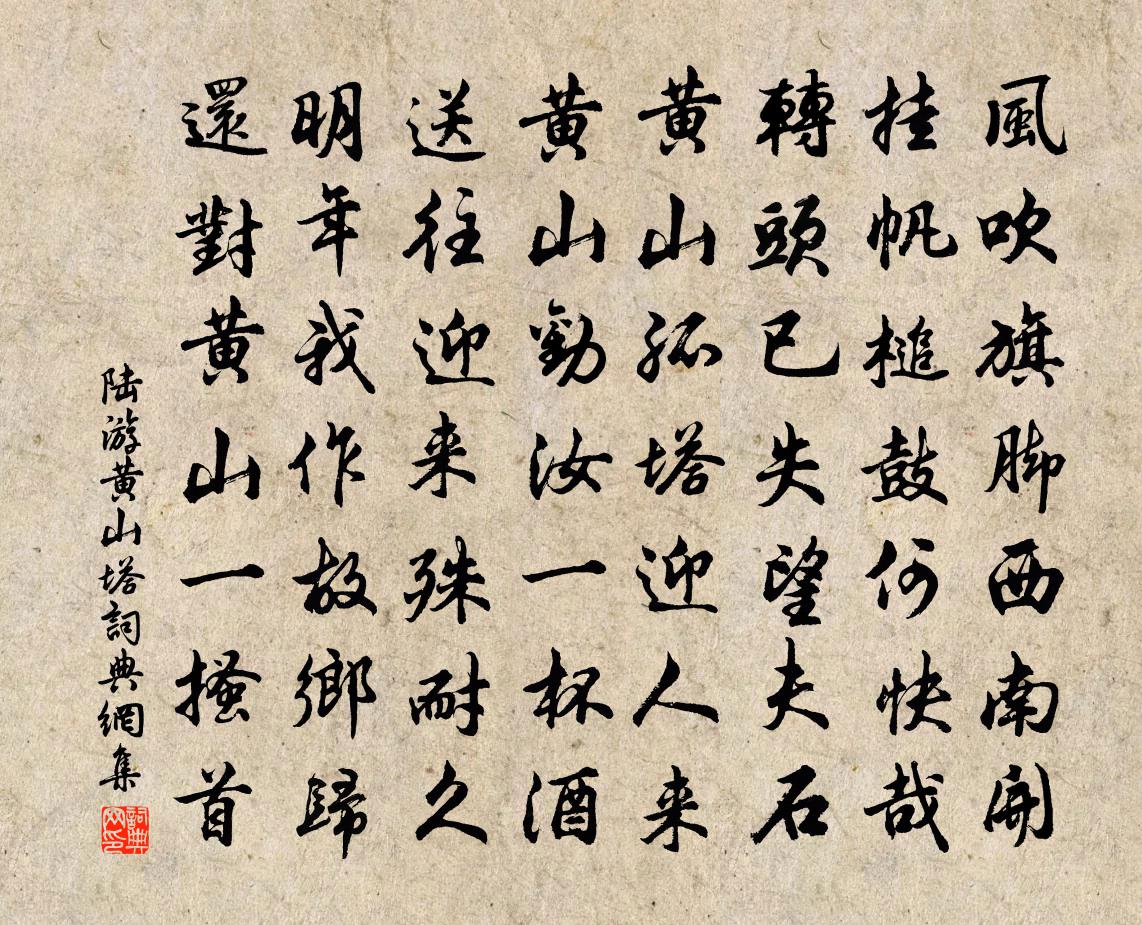 風吹旗脚西南開
挂帆槌鼓何快哉
轉頭已失望夫石
黄山孤塔迎人来
黄山勸汝一杯酒
送往迎来殊耐久
明年我作故鄉歸
還對黄山一搔首
陆游黄山塔詞典網集
詞典网印